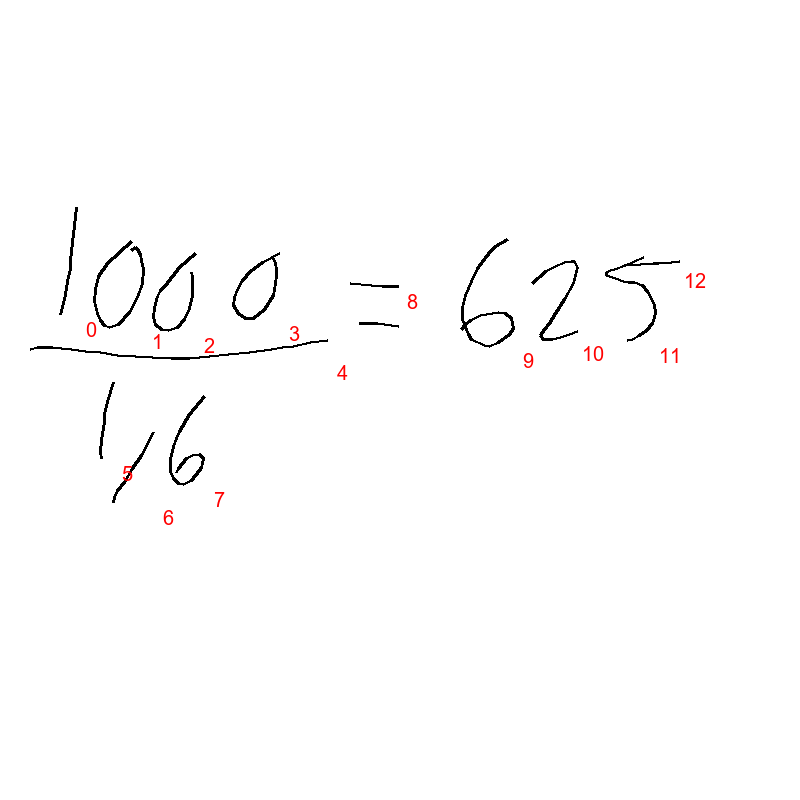 1000
1,6
= 625
0 1 2 3 4 5 6 7 8 9 10 11 12